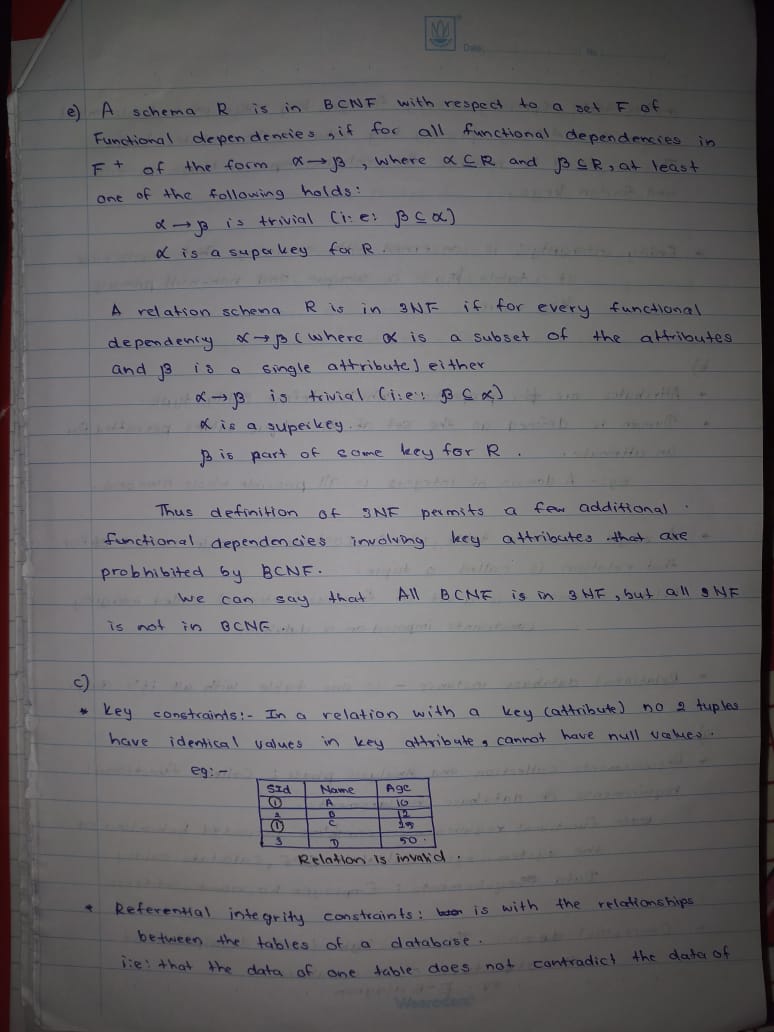 Date: No:
e) A schema R is in BCNF with respect to a set F of
Functional dependencies, if for all functional dependencies in
F+ of the form α→β, where α⊆R and β⊆R, at least
one of the following holds:
α→β is trivial (i:e: β⊆α)
α is a superkey for R.
A relation schema R is in 3NF if for every functional
dependency α→β (where α is a subset of the attributes
and β is a single attribute) either
α→β is trivial (i:e: β⊆α)
α is a superkey.
β is part of some key for R.
Thus definition of 3NF permits a few additional
functional dependencies involving key attributes that are
probhibited by BCNF.
We can say that All BCNF is in 3NF, but all 3NF
is not in BCNF.
c)
* Key constraints:- In a relation with a key (attribute) no 2 tuples
have identical values in key attribute, cannot have null values.
eg:-
SId Name Age
1 A 10
2 B 12
1 C
3 D 50
Relation is invalid.
* Referential integrity constraints: is with the relationships
between the tables of a database.
i:e: that the data of one table does not contradict the data of